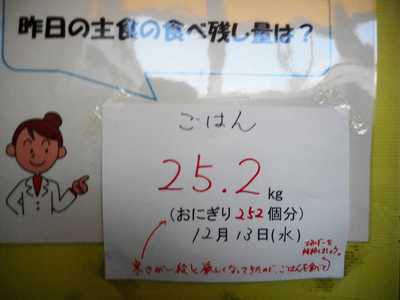 昨日の主食の食べ残し量は?
ごはん
25.2kg
(おにぎり252個分)
12月13日(水)
寒さが一段と厳しくなってきたので、ごはんを食べて
エネルギーを